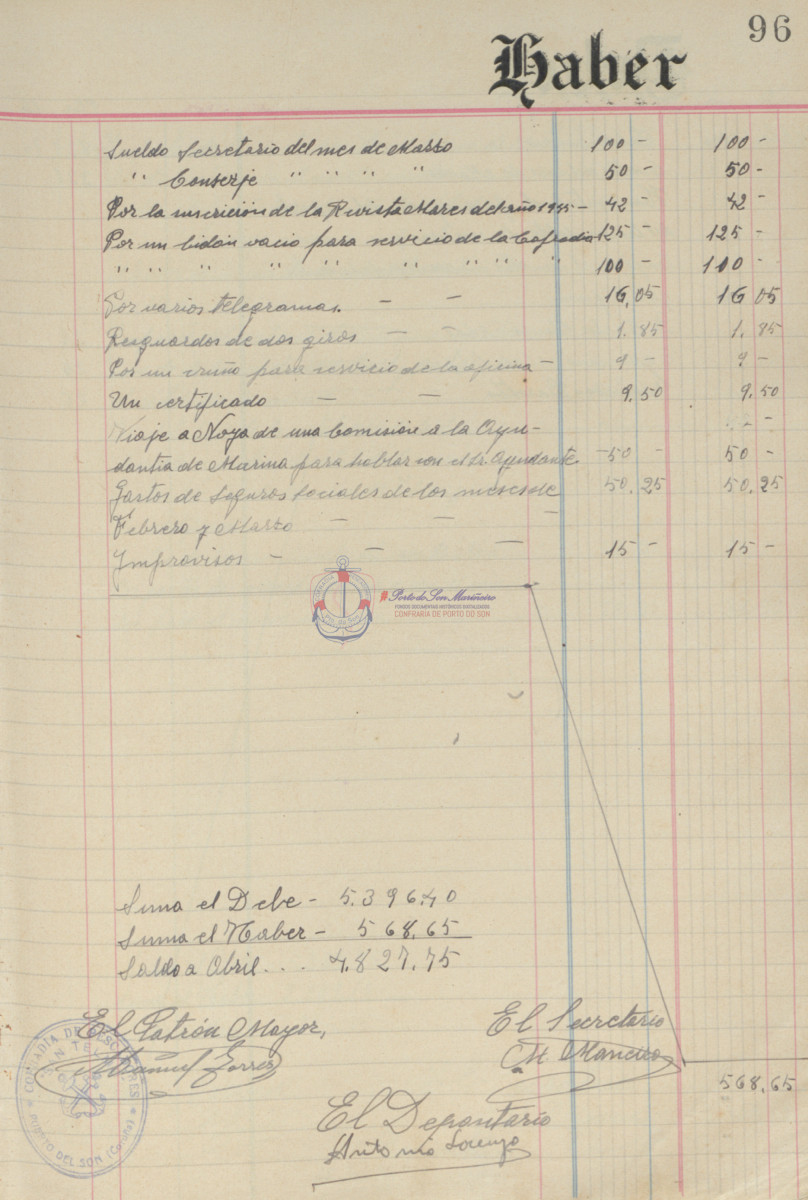 96
Haber
Sueldo Secretario del mes de Marzo 100 - 100 -
" Conserje " " " " 50 - 50 -
Por la suscrición de la Revista Mares del año 1945 - 42 - 42 -
Por un bidón vacio para servicio de la Cofradia 125 - 125 -
" " " " " " " " " 100 - 100 -
Por varios telegramas. - - 16,05 16 05
Resguardos de dos giros - - 1.85 1.85
Por un para servicio de la oficina - 9 - 9 -
Un certificado - - 9,50 9,50
Viaje a Noya de una Comisión a la Ayu-
dantia de Marina para hablar con el Sr. Ayudante - 50 - 50 -
Gastos de Seguros Sociales de los meses de 50,25 50,25
Febrero y Marzo - - -
Improvisos - - - 15 - 15 -
#Porto do Son Mariñeiro
FONDOS DOCUMENTAIS HISTÓRICOS DIXITALIZADOS
CONFRARÍA DE PORTO DO SON
Suma el Debe - 5.396,40
Suma el Haber - 568,65
Saldo a Abril... 4.827,75
El Patrón Mayor,
El Secretario
Manuel Torres
M. Manciro
568,65
COFRADÍA DE PESCADORES
PUERTO DEL SON (Coruña)
El Depositario
Antonio Lorenzo